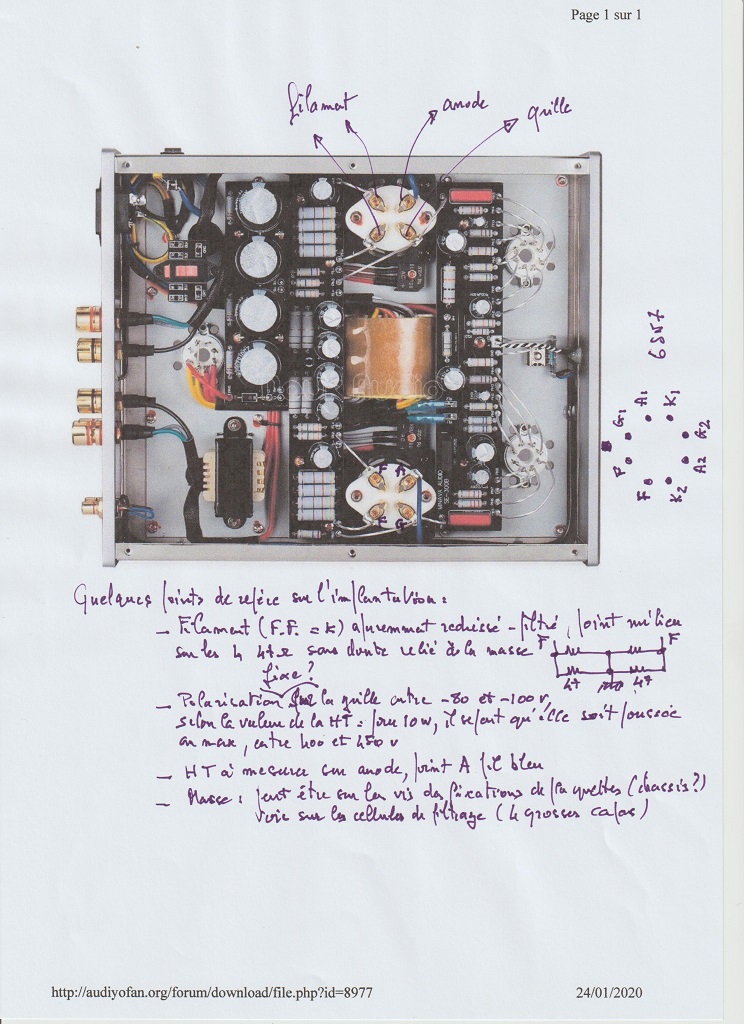 Page 1 sur 1
filament
anode
grille
6SN7
G1
A1
K1
G2
A2
K2
F
F
F A
F G
MINAVA AUDIO
Quelques points de repère sur l'implantation :
— Filament (F.F. = K) apparemment redressé - filtré, point milieu
sur les 4 47Ω sans doute relié à la masse
F F
47 47
fixe ?
— Polarisation sur la grille entre -80 et -100 v,
selon la valeur de la HT : pour 10 w, il se peut qu'elle soit poussée
au max, entre 400 et 450 v
— HT à mesurer sur anode, point A fil bleu
— Masse : peut être sur les vis des fixations de plaquettes (chassis ?)
voir sur les cellules de filtrage (4 grosses capas)
http://audiyofan.org/forum/download/file.php?id=8977
24/01/2020